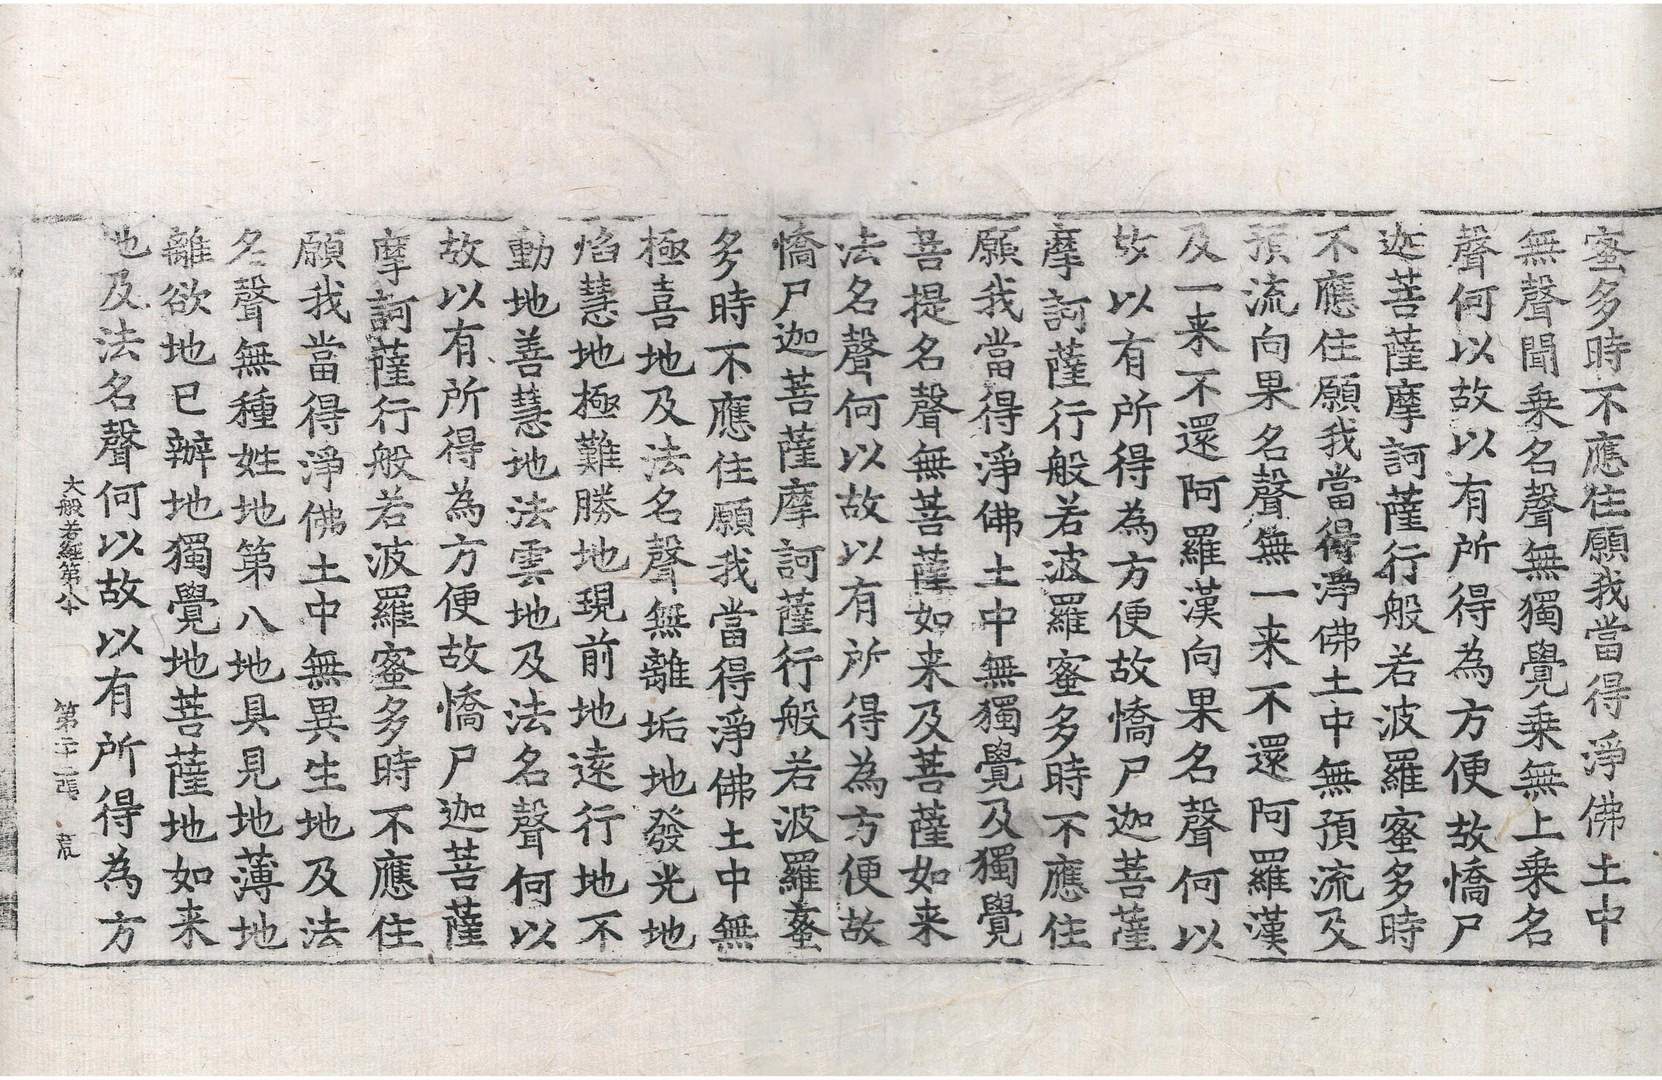 蜜多時不應住願我當得淨佛土中
無聲聞乗名聲無獨覺乗無上乗名
聲何以故以有所得為方便故憍尸
迦菩薩摩訶薩行般若波羅蜜多時
不應住願我當得淨佛土中無預流及
預流向果名聲無一来不還阿羅漢
及一来不還阿羅漢向果名聲何以
故以有所得為方便故憍尸迦菩薩
摩訶薩行般若波羅蜜多時不應住
願我當得淨佛土中無獨覺及獨覺
菩提名聲無菩薩如来及菩薩如来
法名聲何以故以有所得為方便故
憍尸迦菩薩摩訶薩行般若波羅蜜
多時不應住願我當得淨佛土中無
極喜地及法名聲無離垢地發光地
焰慧地極難勝地現前地遠行地不
動地善慧地法雲地及法名聲何以
故以有所得為方便故憍尸迦菩薩
摩訶薩行般若波羅蜜多時不應住
願我當得淨佛土中無異生地及法
名聲無種姓地第八地具見地薄地
離欲地已辦地獨覺地菩薩地如来
地及法名聲何以故以有所得為方
大般若經第八十 第二十二張 宸